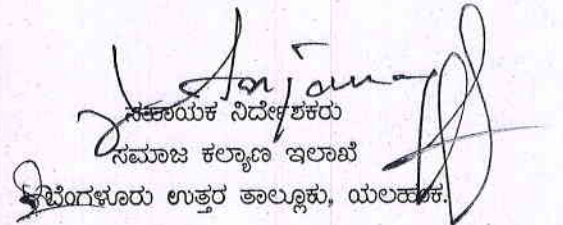 ಸಹಾಯಕ ನಿರ್ದೇಶಕರು
ಸಮಾಜ ಕಲ್ಯಾಣ ಇಲಾಖೆ
ಬೆಂಗಳೂರು ಉತ್ತರ ತಾಲ್ಲೂಕು, ಯಲಹಂಕ.